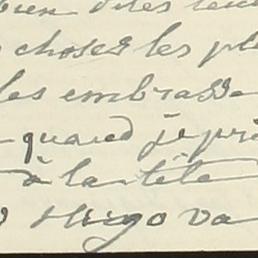 bien dites leur
choses les pl
les embrasse
quand je pri
à la tête
Hugo va